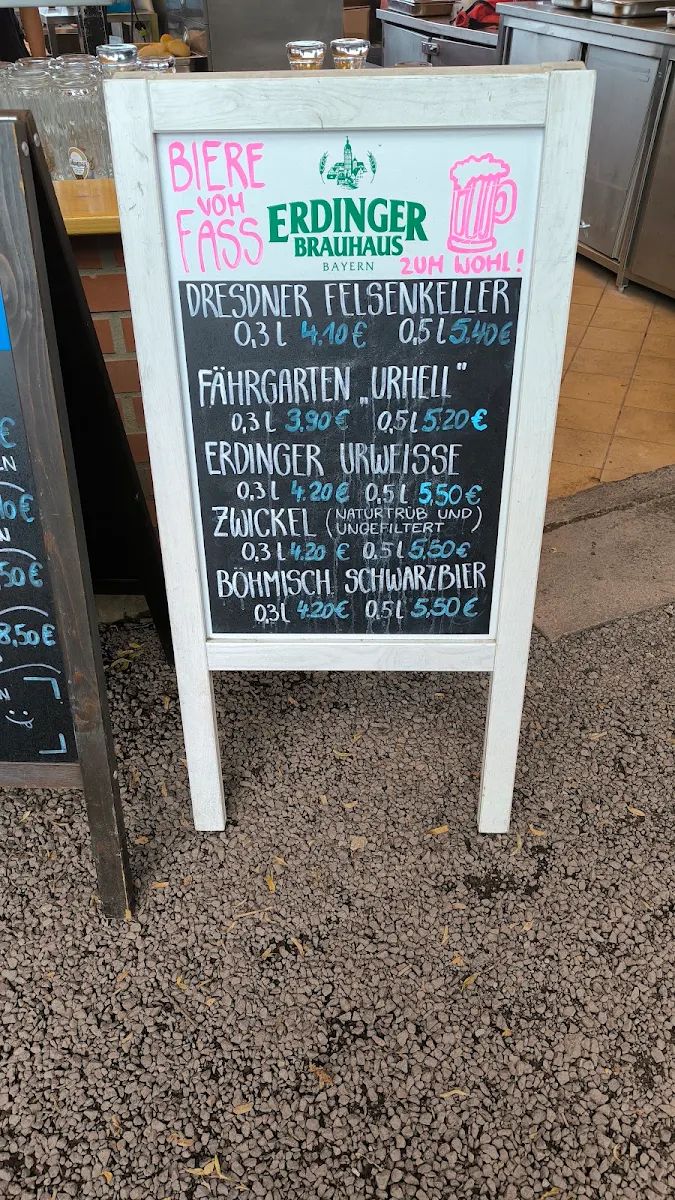 BIERE
VOM
FASS
ERDINGER
BRAUHAUS
BAYERN
ZUM WOHL!
DRESDNER FELSENKELLER
0,3 l 4.10 € 0,5 l 5.40 €
FÄHRGARTEN „URHELL"
0,3 l 3.90 € 0,5 l 5.20 €
ERDINGER URWEISSE
0,3 l 4.20 € 0,5 l 5,50 €
ZWICKEL (NATURTRÜB UND
UNGEFILTERT)
0,3 l 4.20 € 0,5 l 5,50 €
BÖHMISCH SCHWARZBIER
0,3 l 4.20 € 0,5 l 5,50 €
8,50 €